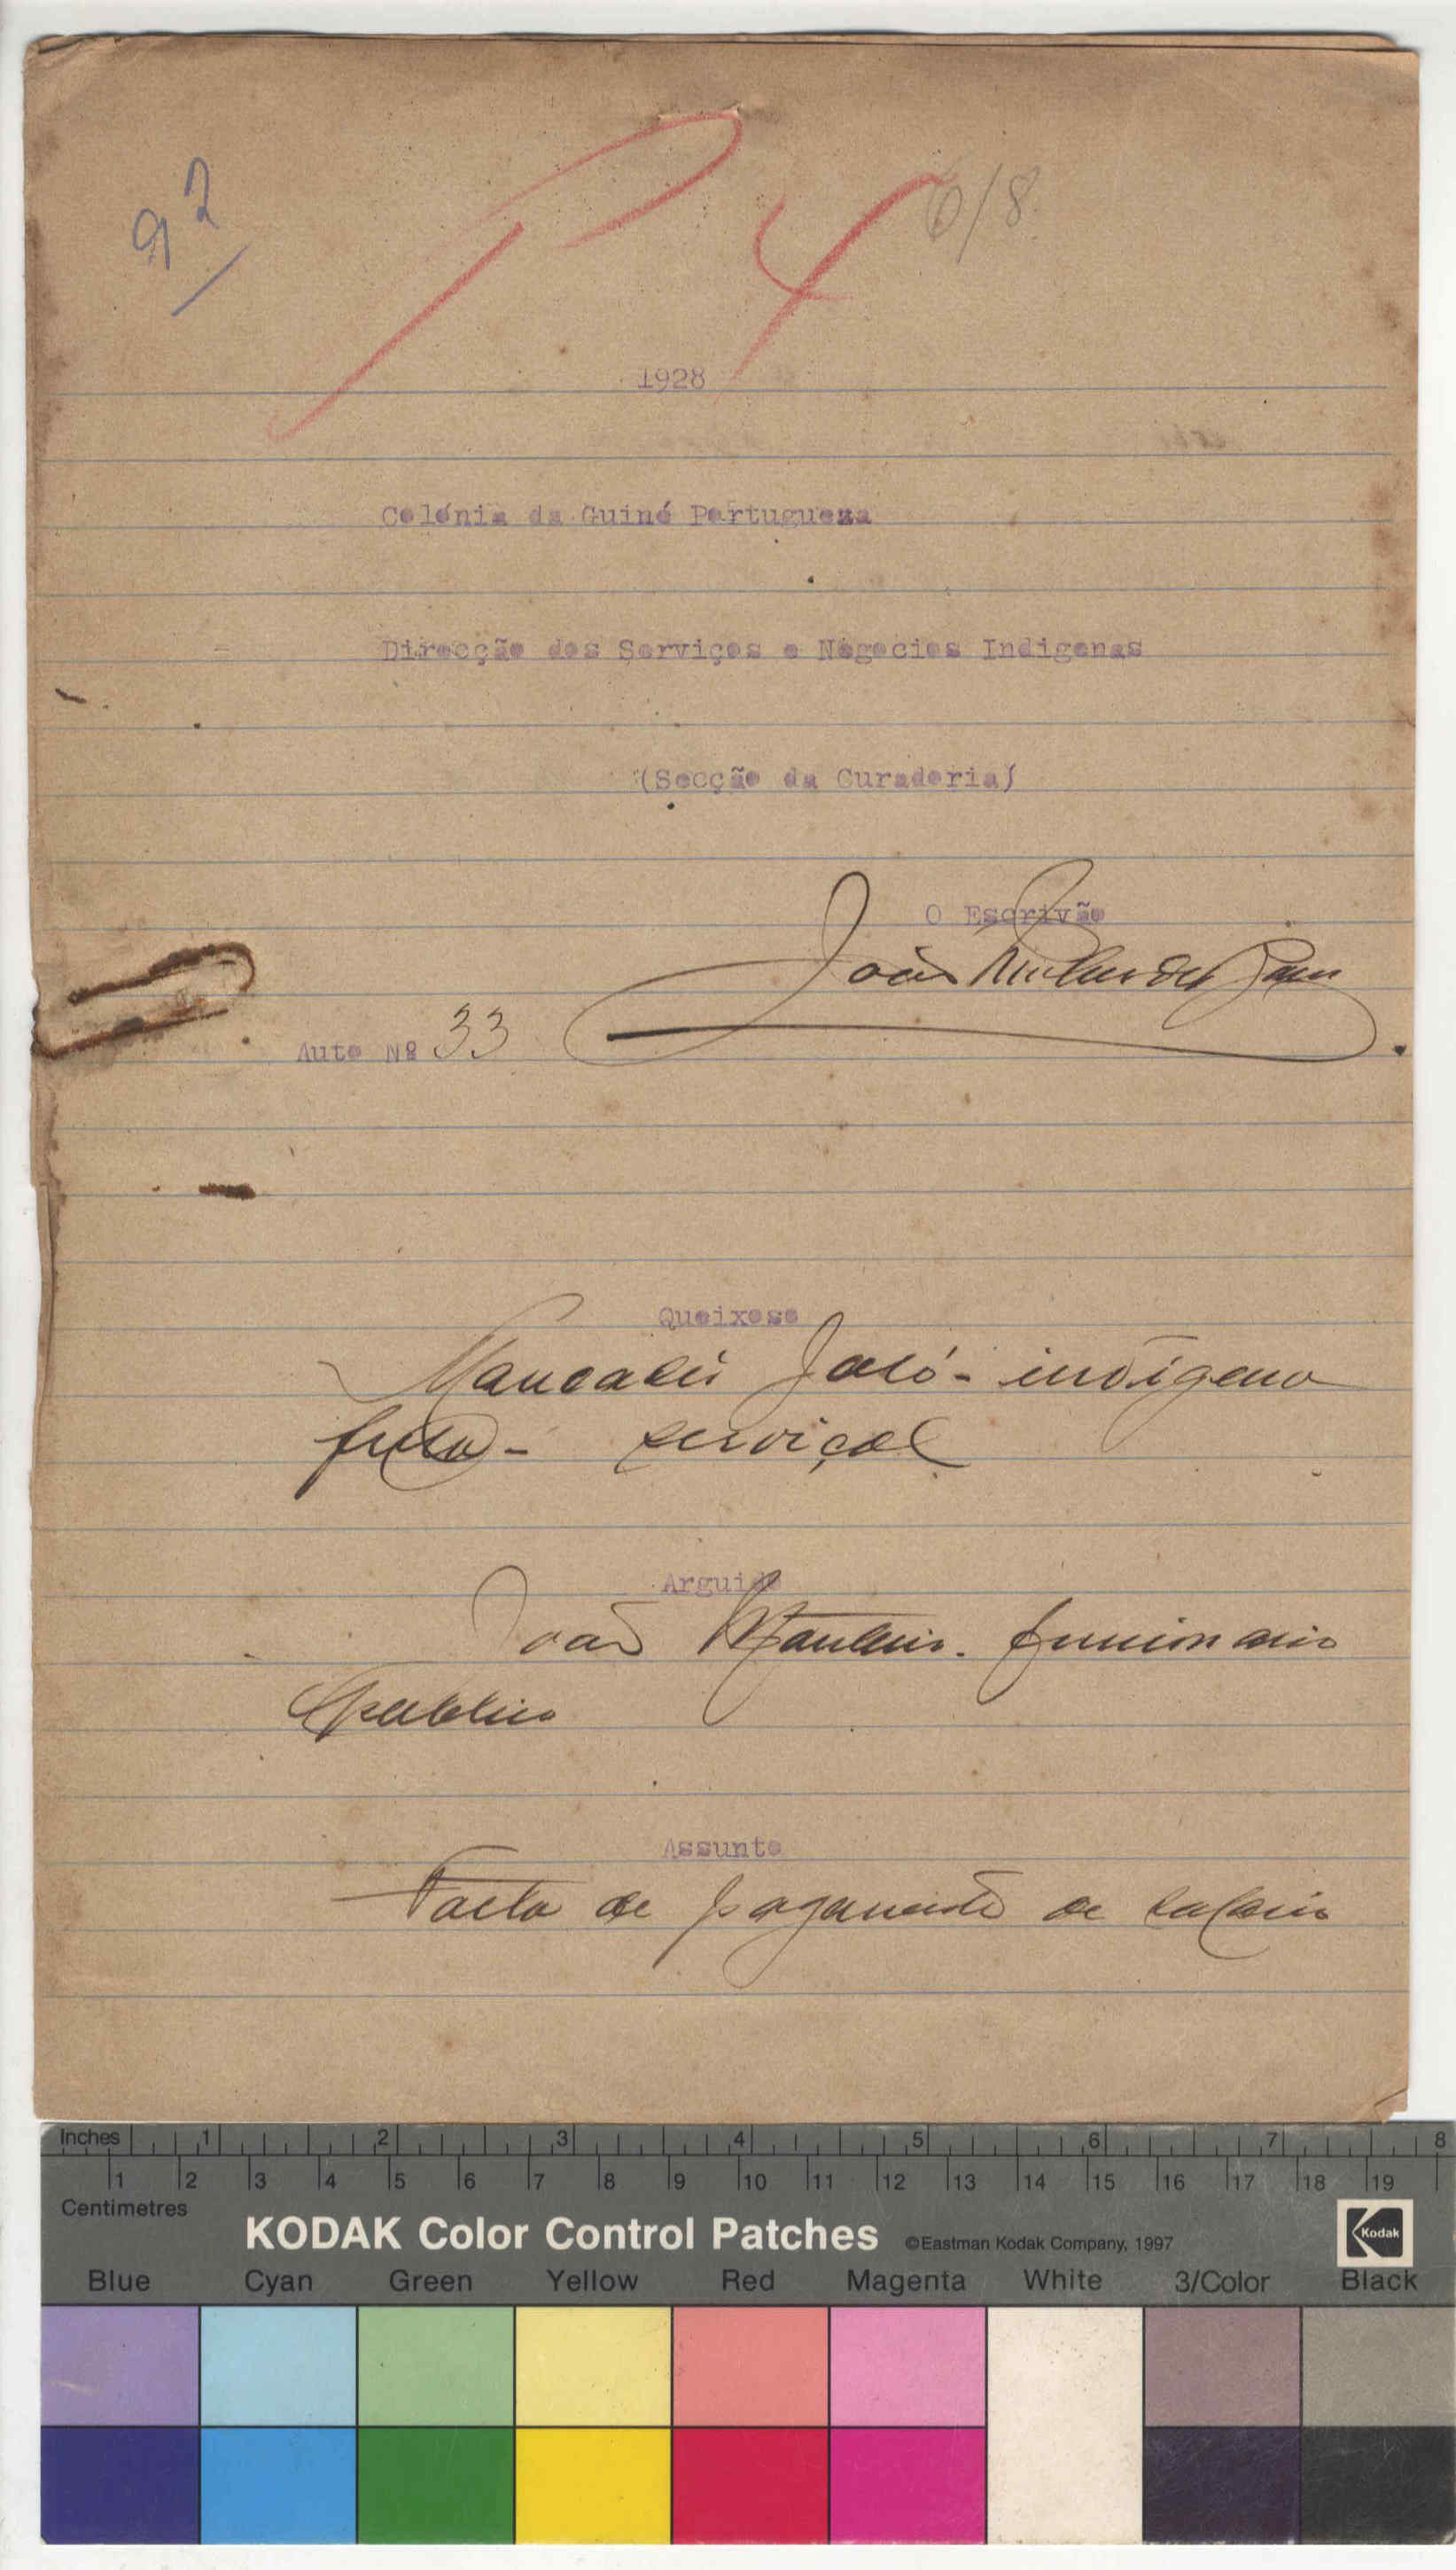 92
P 4 6/8
1928
Colónia da Guiné Portugueza
Direcção dos Serviços e Negocios Indigenas
(Secção da Curadoria)
O Escrivão
João
Auto Nº 33
Queixoso
Jaló - indígena
fula - serviçal
Arguido
João funcionario
publico
Assunto
Falta de pagamento de salario
Inches 1 2 3 4 5 6 7 8
1 2 3 4 5 6 7 8 9 10 11 12 13 14 15 16 17 18 19
Centimetres
KODAK Color Control Patches ©Eastman Kodak Company, 1997 Kodak
Blue Cyan Green Yellow Red Magenta White 3/Color Black